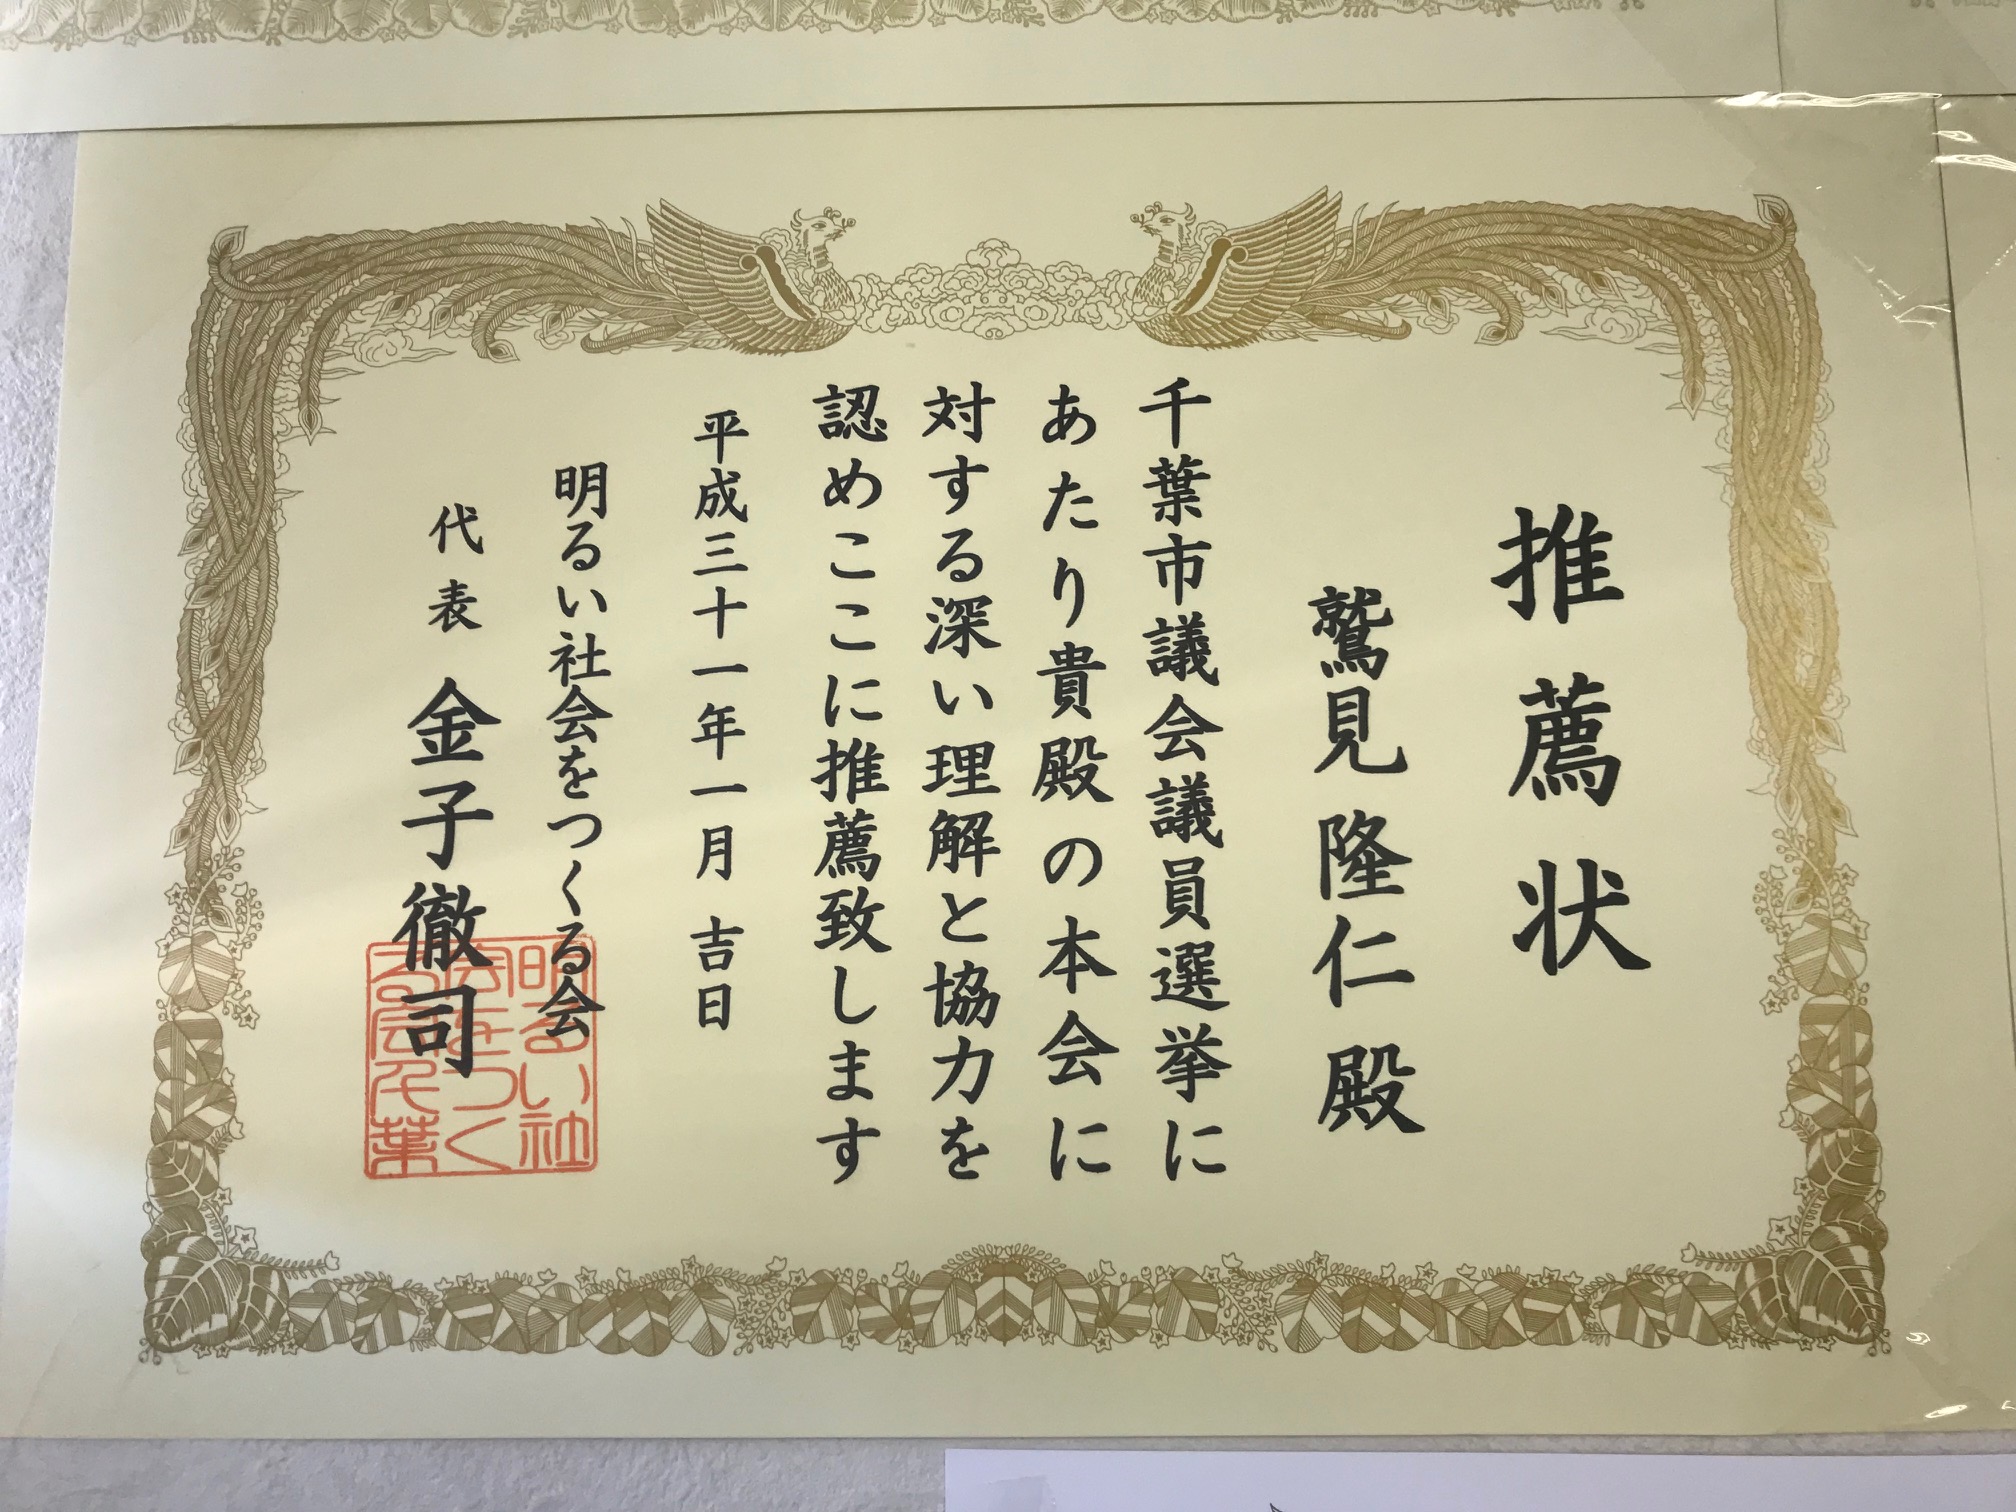 推薦状
鷲見隆仁殿
千葉市議会議員選挙に
あたり貴殿の本会に
対する深い理解と協力を
認めここに推薦致します
平成三十一年一月吉日
明るい社会をつくる会
代表 金子徹司
明るい社
会をつく
る会千葉